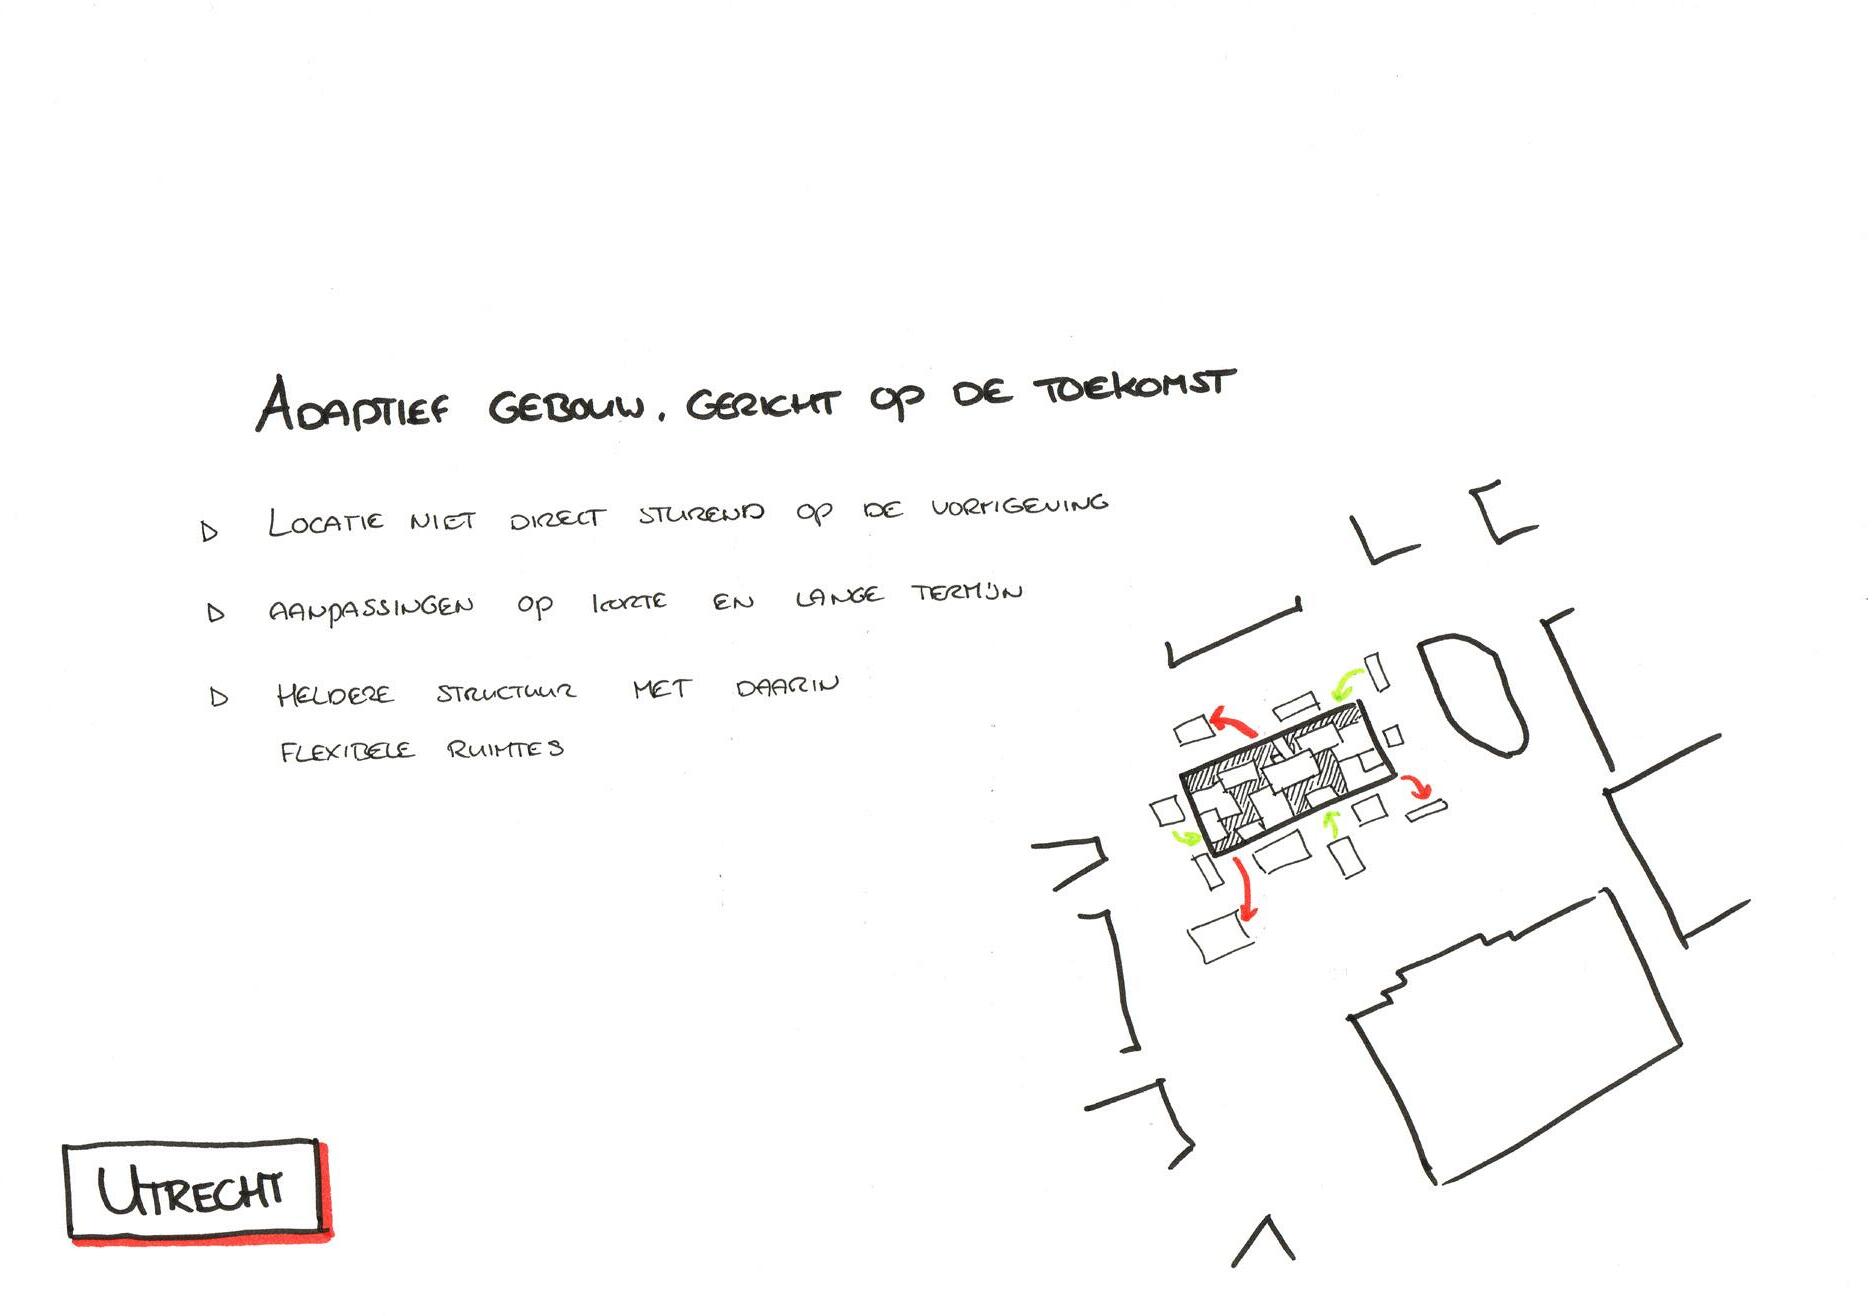 ADAPTIEF GEBOUW, GERICHT OP DE TOEKOMST
LOCATIE NIET DIRECT STUREND OP DE VORMGEVING
AANPASSINGEN OP KORTE EN LANGE TERMIJN
HELDERE STRUCTUUR MET DAARIN
FLEXIBELE RUIMTES
UTRECHT